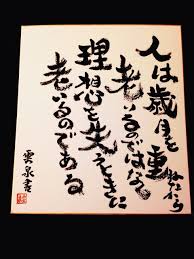 人は歳月を重ねたから
老いるのではなく
理想を失うときに
老いるのである
雲泉書